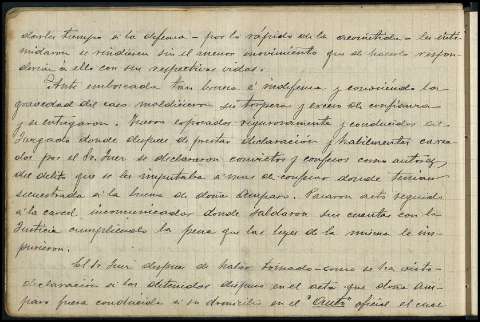 darles tiempo á la defensa - por lo rápido de la acometida - les inti-
midaron se rindiesen sin el menor movimiento que de hacerlo respon-
derian á ello con sus respectivas vidas.
Ante emboscada tan buena é indefensa y conociendo la
gravedad del caso maldicieron su torpeza y exceso de confianza
y se entregaron. Fueron esposados rigurosamente y conducidos al
Juzgado donde despues de prestar declaración y habilmente carea-
dos por el Sr. Juez se declararon convictos y confesos como autores
del delito que se les imputaba á mas de confesar donde tenian
secuestrada á la buena de doña Amparo. Pasaron acto seguido
á la carcel incomunicados donde saldaron sus cuentas con la
Justicia cumpliendo la pena que las leyes de la misma le im-
pusieron.
El Sr. Juez despues de haber tomado - como se ha visto -
declaración á los detenidos dispuso en el acto que doña Am-
paro fuera conducida á su domicilio en el "Auto" oficial el cual